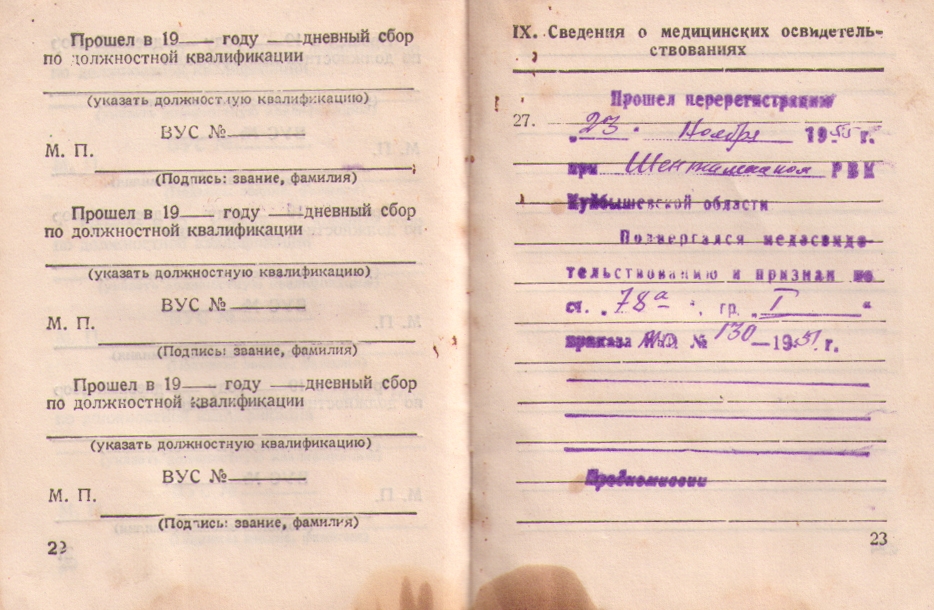 Прошел в 19 году дневный сбор
по должностной квалификации
(указать должностную квалификацию)
ВУС №
М. П.
(Подпись: звание, фамилия)
Прошел в 19 году дневный сбор
по должностной квалификации
(указать должностную квалификацию)
ВУС №
М. П.
(Подпись: звание, фамилия)
Прошел в 19 году дневный сбор
по должностной квалификации
(указать должностную квалификацию)
ВУС №
М. П.
(Подпись: звание, фамилия)
22
IX. Сведения о медицинских освидетель-
ствованиях
Прошел перерегистрацию
27.
„23 " Ноября 19 г.
при РВК
Куйбышевской области
Подвергался медосвиде-
тельствованию и признан по
ст. „78а ", гр. „I "
приказа № 130 — 1951 г.
Предкомиссии
23